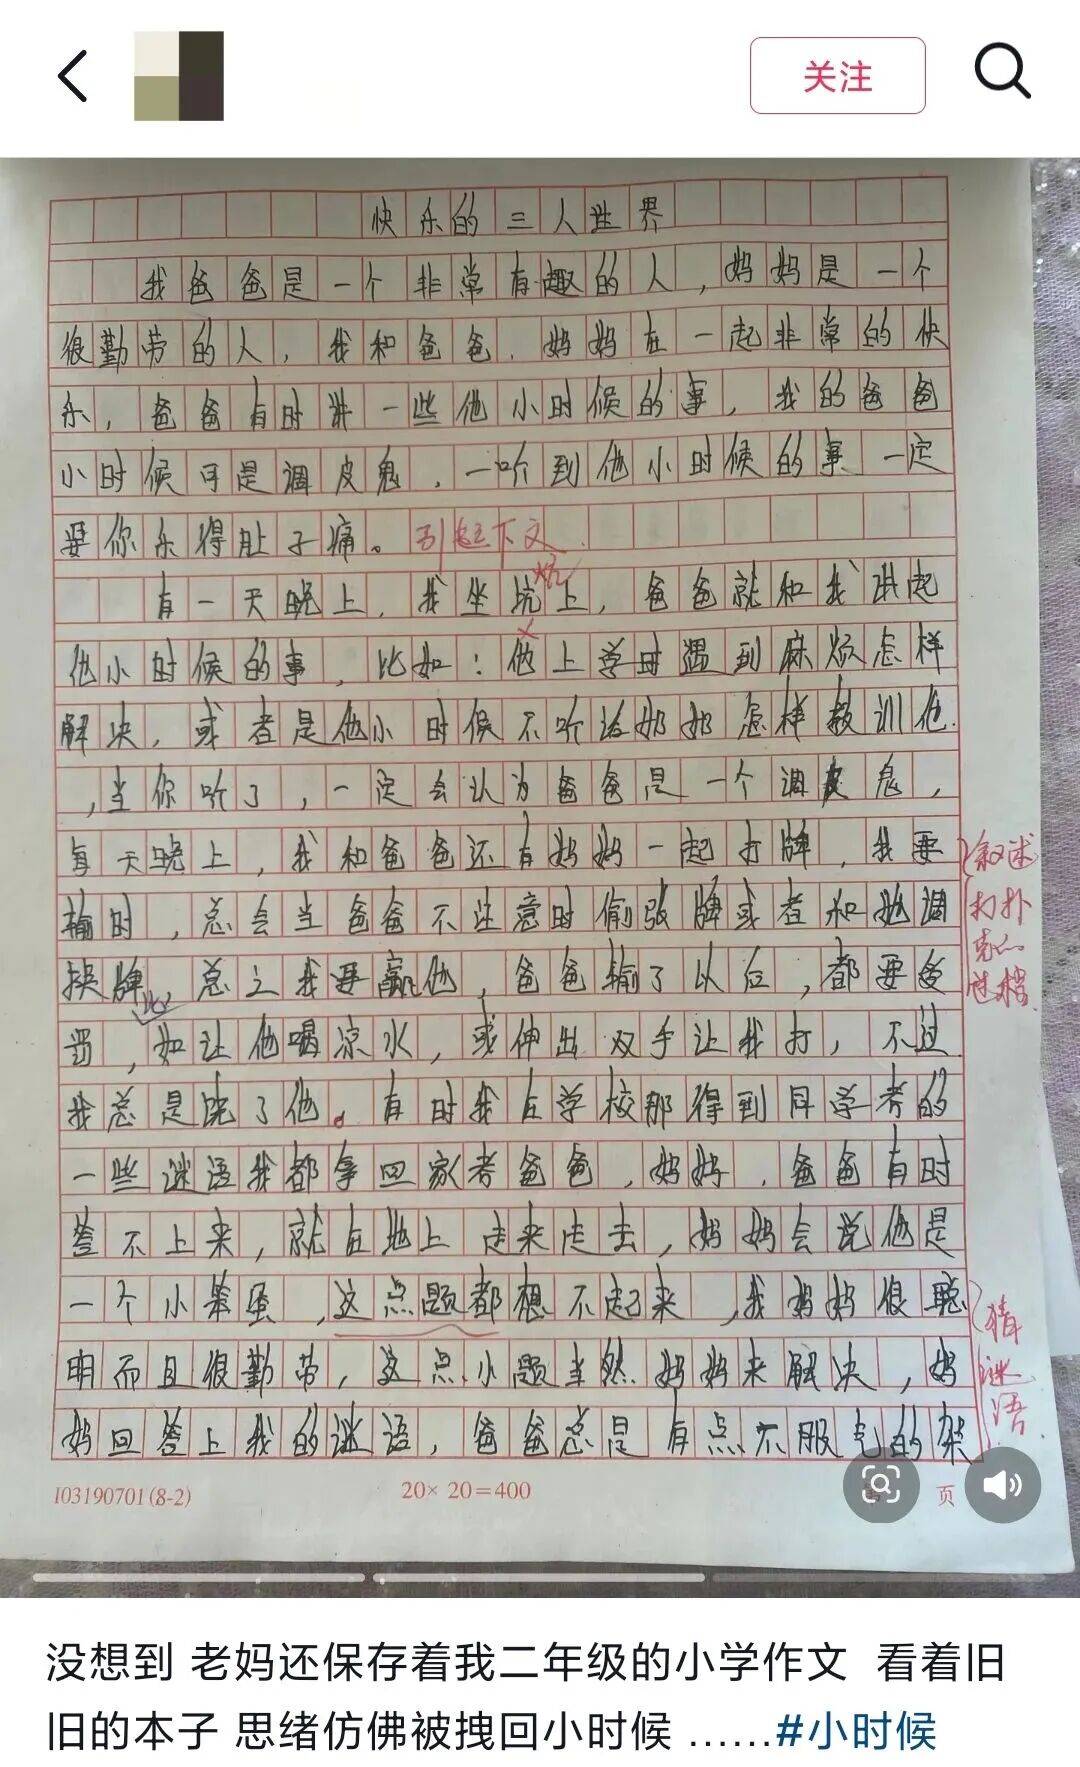 关注
快乐的三人世界
我爸爸是一个非常有趣的人，妈妈是一个
很勤劳的人，我和爸爸、妈妈在一起非常的快
乐，爸爸有时讲一些他小时候的事，我的爸爸
小时候可是调皮鬼，一听到他小时候的事一定
要你乐得肚子痛。引起下文
炕
有一天晚上，我坐坑上，爸爸就和我讲起
他小时候的事，比如：他上学时遇到麻烦怎样
解决，或者是他小时候不听话奶奶怎样教训他
，当你听了，一定会认为爸爸是一个调皮鬼，
每天晚上，我和爸爸还有妈妈一起打牌，我要
输时，总会当爸爸不注意时偷张牌或者和她调
换牌，总之我要赢他，爸爸输了以后，都要受
罚，如让他喝凉水，或伸出双手让我打，不过
比
叙述
打扑
克的
过程
我总是饶了他。有时我在学校那得到同学考的
一些谜语我都拿回家考爸爸，妈妈，爸爸有时
答不上来，就在地上走来走去，妈妈会说他是
一个小笨蛋，这点题都想不起来，我妈妈很聪
明而且很勤劳，这点小题当然妈妈来解决，妈
妈回答上我的谜语，爸爸总是有点不服气的
猜
谜
语
I03190701(8-2)
20×20=400
页
没想到 老妈还保存着我二年级的小学作文 看着旧
旧的本子 思绪仿佛被拽回小时候 ……#小时候